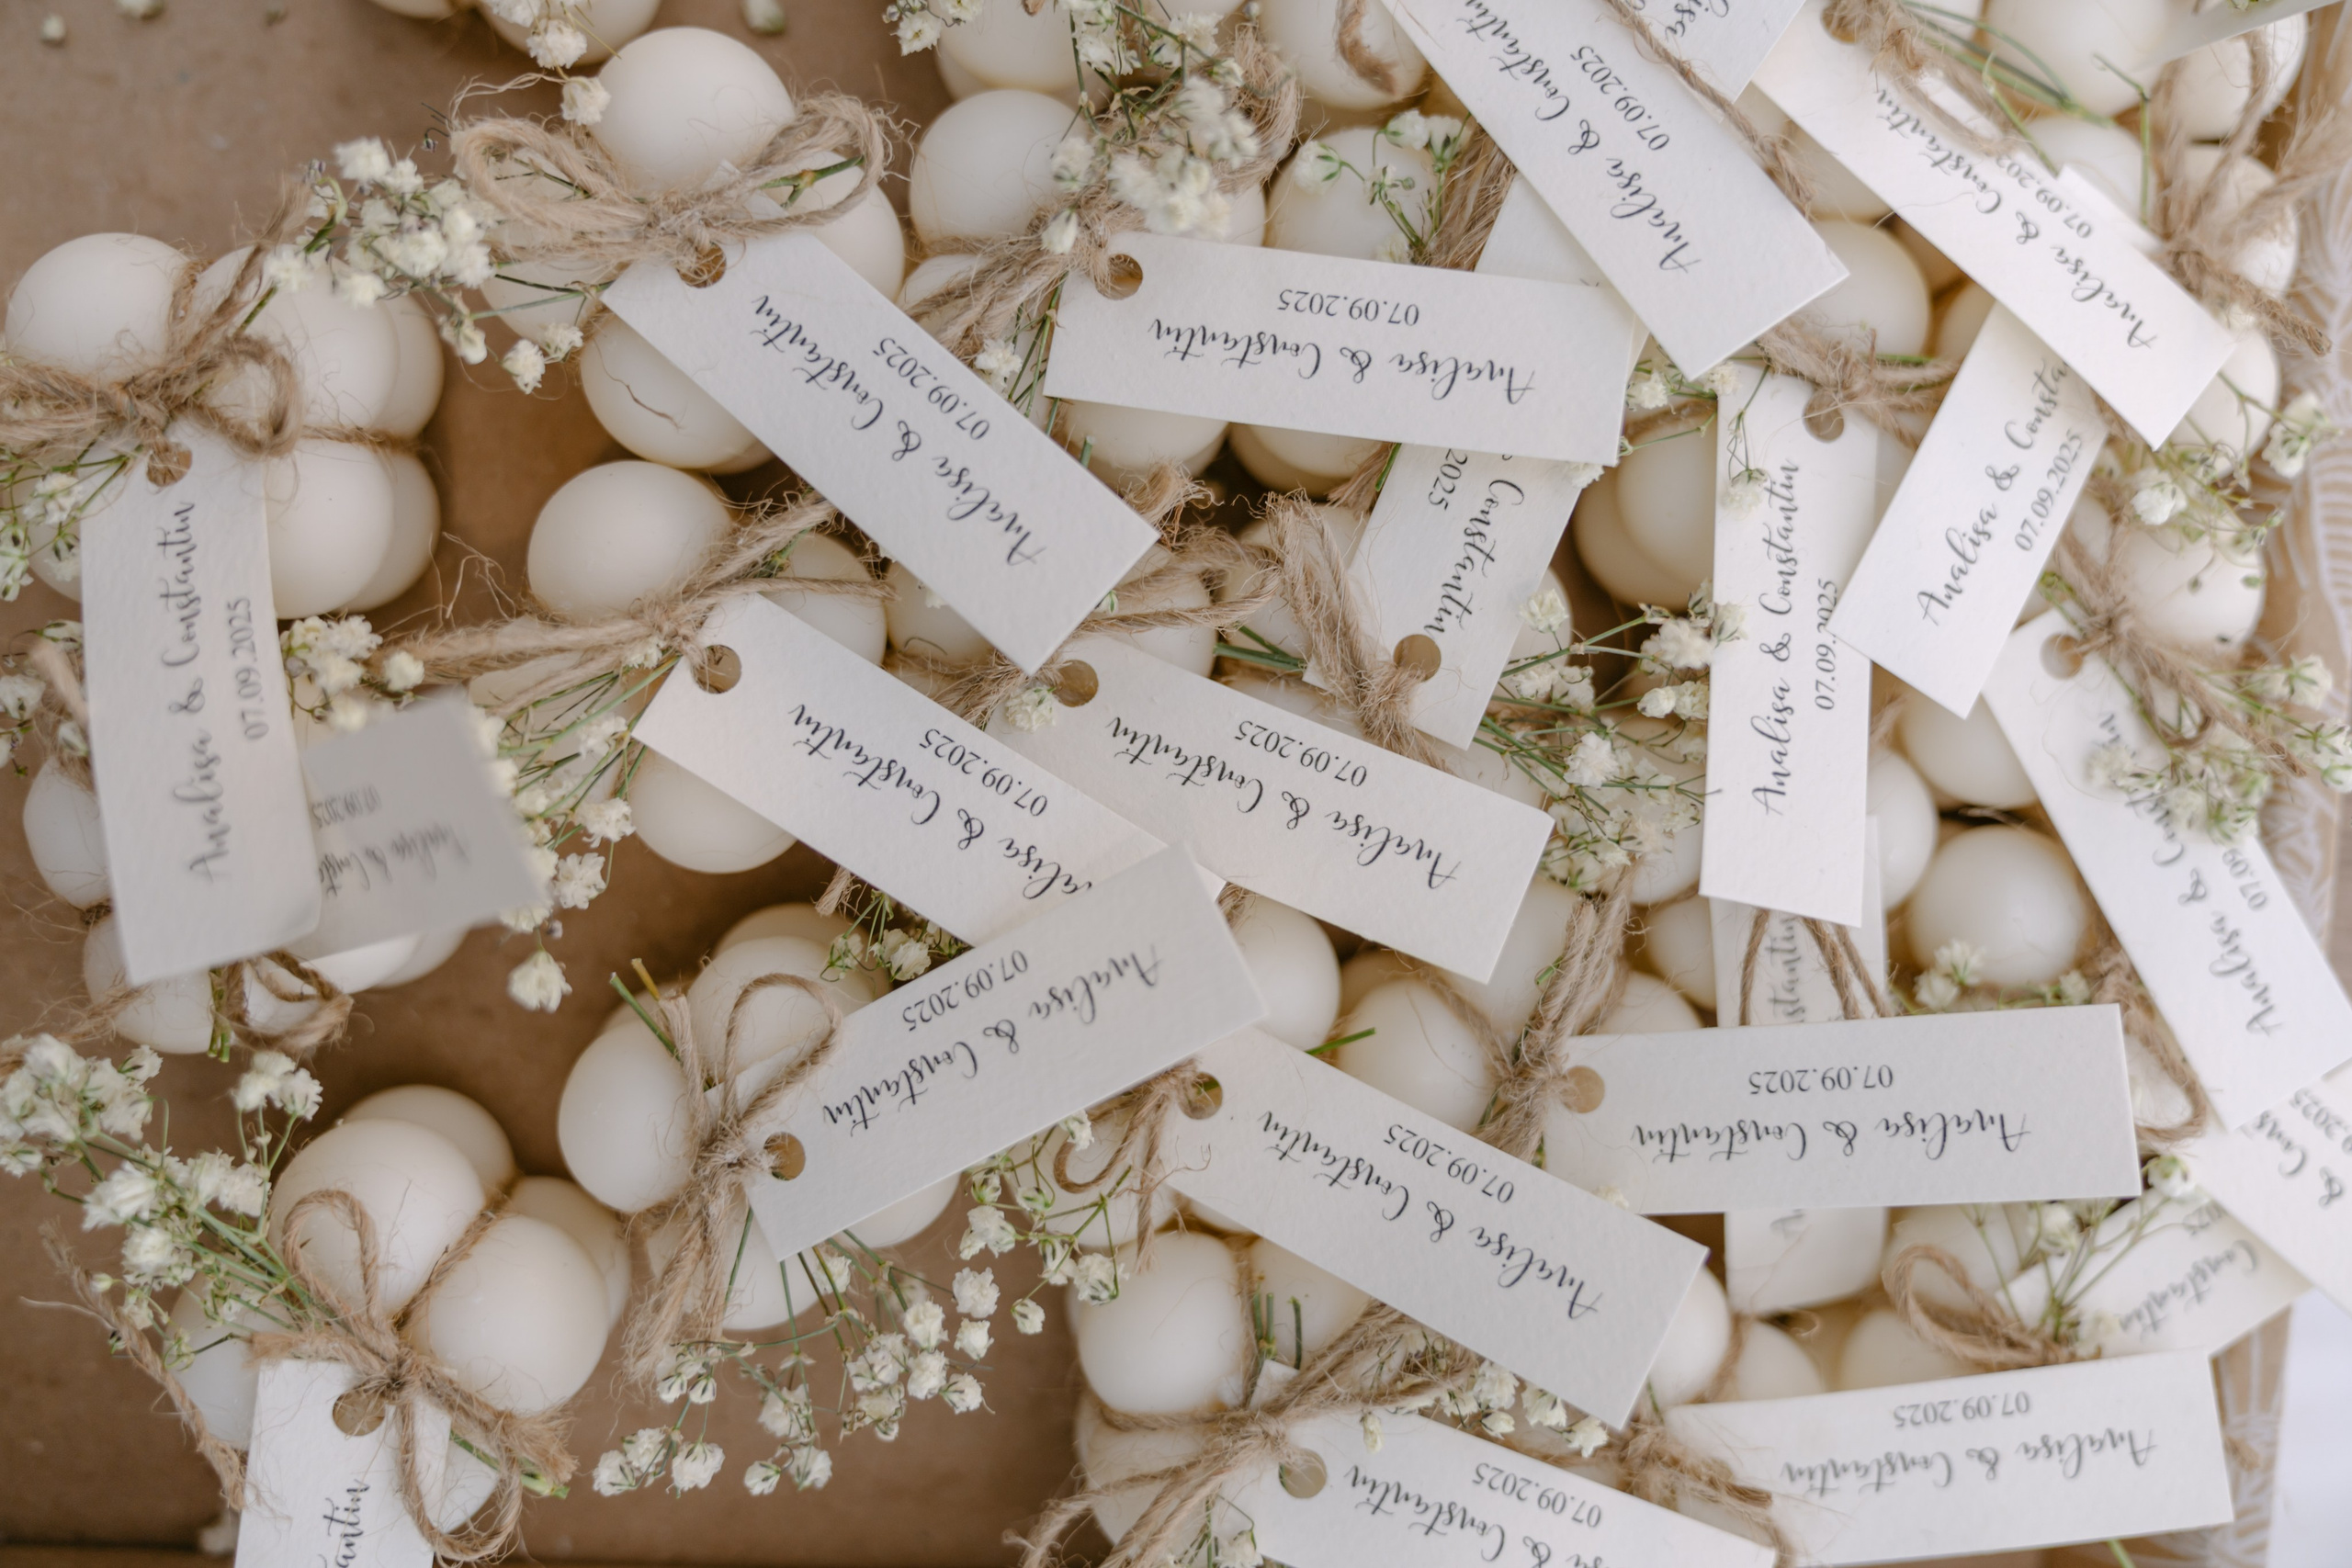 Analisa & Constantin
07.09.2025
Analisa & Constantin
07.09.2025
Analisa & Constantin
07.09.2025
Analisa & Constantin
07.09.2025
Analisa & Constantin
07.09.2025
Constantin
2025
Analisa & Constantin
07.09.2025
Analisa & Constantin
07.09.2025
& Constantin
07.09.2025
Analisa & Constantin
07.09.2025
Analisa &
07.09.2025
Analisa & Constantin
07.09.2025
Analisa & Constantin
07.09.2025
Analisa & Constantin
07.09.2025
Analisa & Constantin
07.09.2025
Constantin
Analisa & Constantin
07.09.2025
& Constantin
07.09.2025